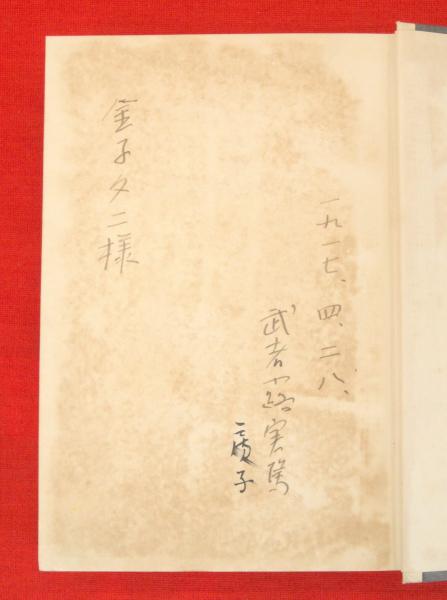 一九一七、四、二八、
武者小路実篤
房子
金子夕二様